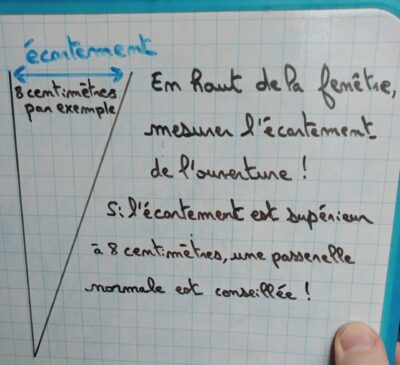 écartement
8 centimètres
par exemple
En haut de la fenêtre,
mesurer l'écartement
de l'ouverture !
Si l'écartement est supérieur
à 8 centimètres, une passerelle
normale est conseillée !